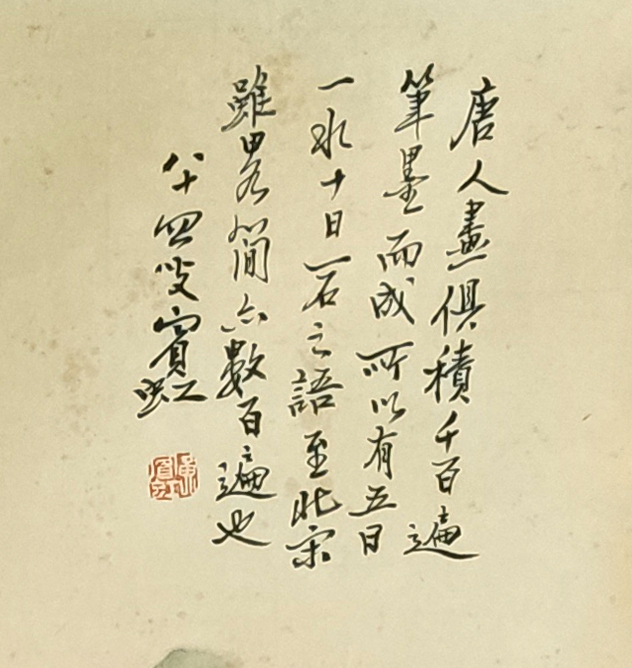 唐人畫俱積千百遍
筆墨而成所以有五日
一水十日一石之語至北宋
雖畧簡亦數百遍也
八十四叟賓虹
黃賓虹